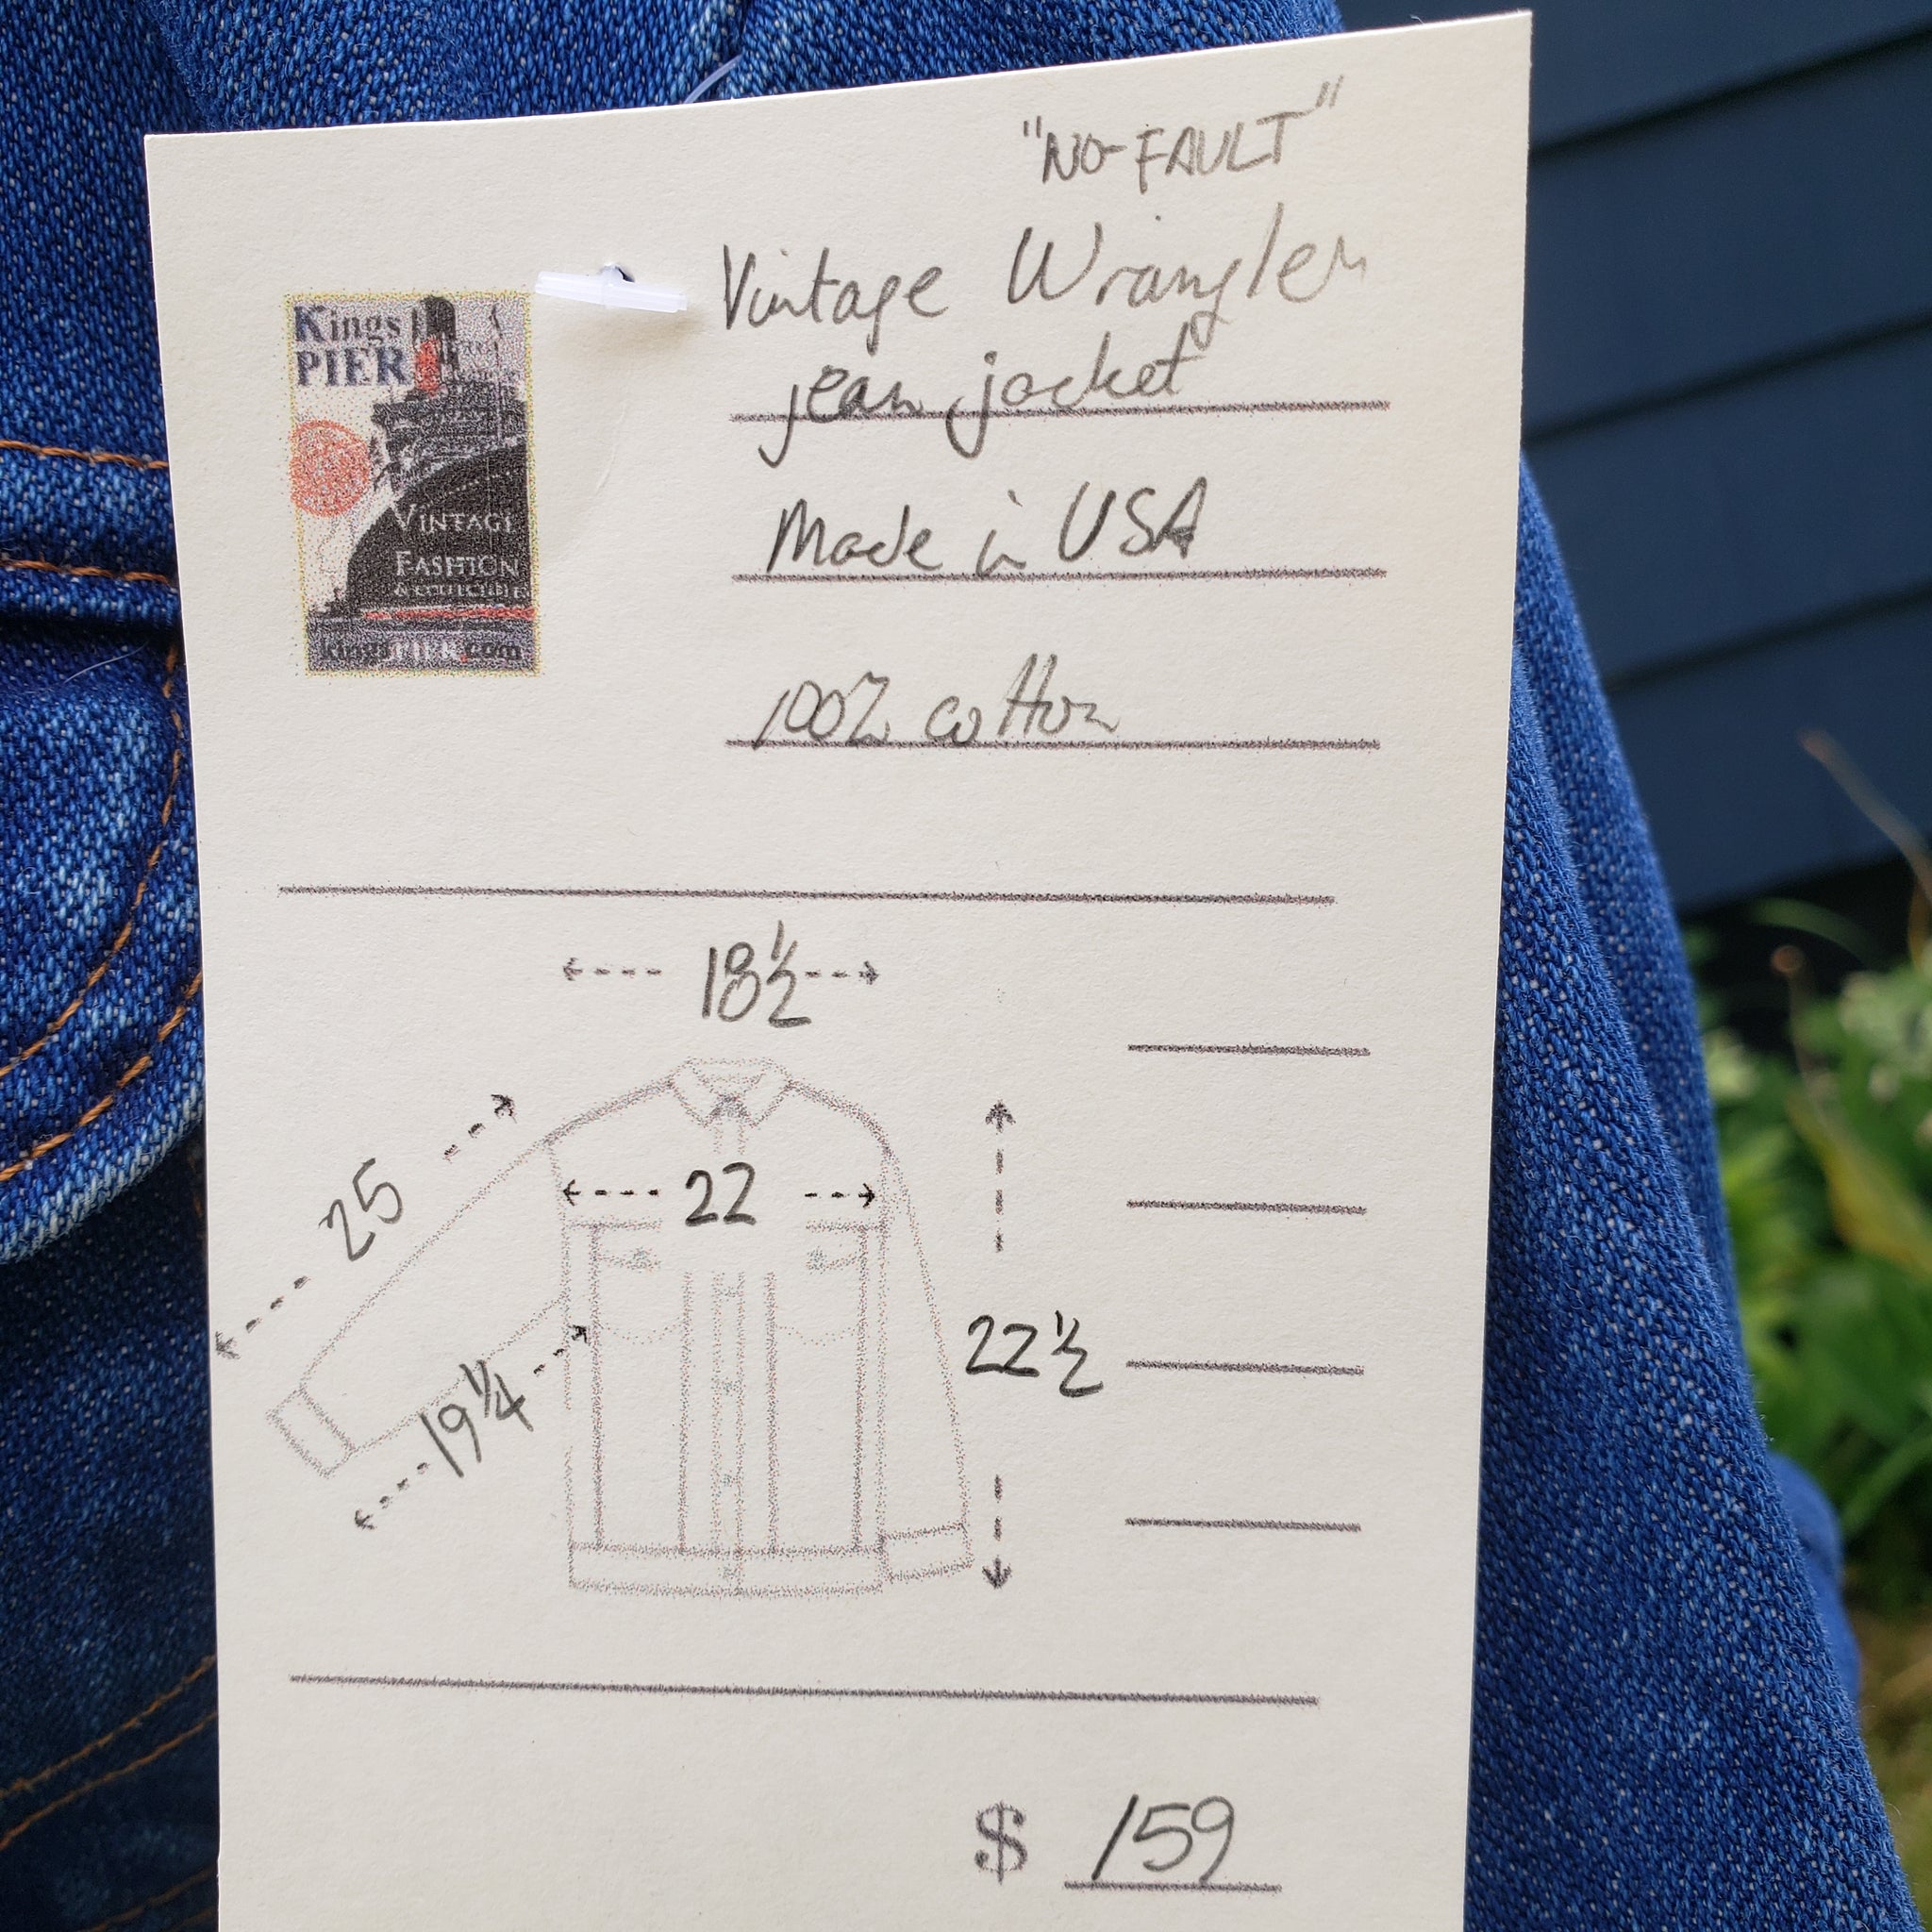 "NO-FAULT"
Vintage Wrangler
jean jacket
Made in USA
100% cotton
Kings
PIER
VINTAGE
FASHION
& COLLECTIBLES
kingsPIER.com
18 1/2
25
22
19 1/4
22 1/2
$ 159